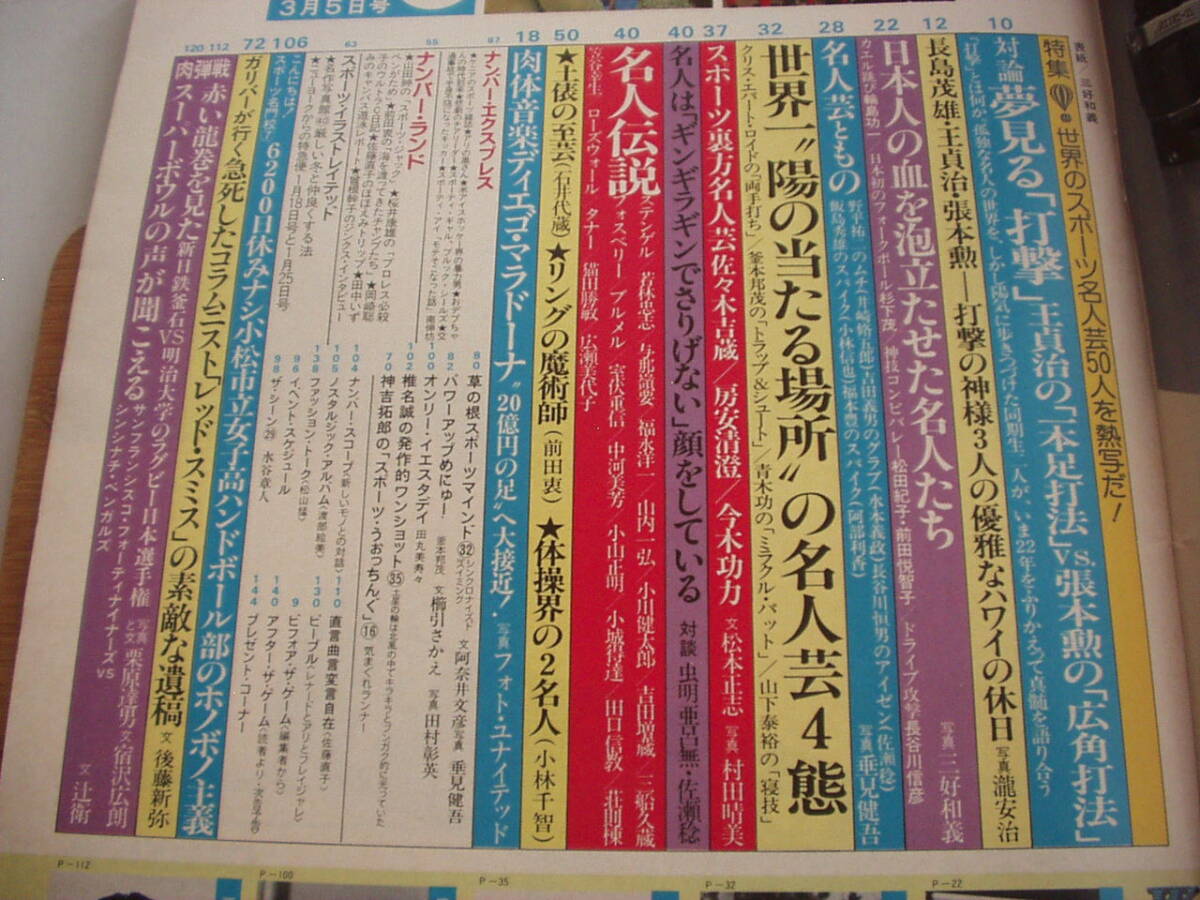 3月5日号
表紙 三好和義
特集 世界のスポーツ名人芸50人を熱写だ!
10
対論 夢見る「打撃」王貞治の「一本足打法」vs.張本勲の「広角打法」
「打撃」とは何か、孤独な名人の世界を、しかし陽気に歩きつづけた同期生二人が、いま22年をふりかえって真髄を語り合う
12
長島茂雄・王貞治・張本勲―打撃の神様3人の優雅なハワイの休日 写真 瀧安治
22
日本人の血を泡立たせた名人たち 写真 三好和義
カエル跳び輪島功一/日本初のフォークボール杉下茂/神技コンビバレー松田紀子・前田悦智子 ドライブ攻撃長谷川信彦
28
名人芸ともの 写真 垂見健吾
野平祐二のムチ(井崎脩五郎)吉田義男のグラブ(水本義政)長谷川恒男のアイゼン(佐瀬稔)
飯島秀雄のスパイク(小林信也)福本豊のスパイク(阿部利香)
32
世界一"陽の当たる場所"の名人芸4態
クリス・エバート・ロイドの「両手打ち」/釜本邦茂の「トラップ&シュート」/青木功の「ミラクル・パット」/山下泰裕の「寝技」
37
スポーツ裏方名人芸 佐々木吉蔵/房安清澄/今木功力 文 松本正志 写真 村田晴美
40
名人は「ギンギラギンでさりげない」顔をしている 対談 虫明亜呂無・佐瀬稔
40
名人伝説
ステンゲル 若林忠志 与那嶺要 福永洋一/山内一弘/小川健太郎/吉田増蔵/三船久蔵
フォスベリー ブルメル 室伏重信 中河美芳 小山正明 小城得達/田口信教 荘則棟
笠谷幸生 ローズウォール ターナー 猫田勝敏/広瀬美代子
50
★土俵の至芸(石井代蔵)★リングの魔術師(前田衷)★体操界の2名人(小林千智)
18
肉体音楽ディエゴ・マラドーナ"20億円の足"へ大接近! 写真 フォト・ユナイテッド
67
ナンバー・エクスプレス
55
ナンバー・ランド
63
スポーツ・イラストレイテッド
★ニューヨークからの特急便 1月18日号と1月25日号
80
草の根スポーツマインド㉜シンクロナイズド・スイミング 文 阿奈井文彦 写真 垂見健吾
82
パワーアップめにゅー 釜本邦茂 文 櫛引さかえ 写真 田村彰英
100
オンリー・イエスタデイ 田丸美寿々
102
椎名誠の発作的ワンショット㉟
70
神吉拓郎の「スポーツ・うおっちんぐ」⑯気まぐれランナー
104
ナンバー・スコープ(新しいモノとの対話)
105
ノスタルジック・アルバム(渡部絵美)
138
ファッション・トーク(松山猛)
96
イベント・スケジュール
98
ザ・シーン㉙ 水谷章人
110
直言曲言変言自在(佐藤直子)
130
ピープル(レナードとアリとフレイジャー)
9
ビフォア・ザ・ゲーム(編集者から)
140
アフター・ザ・ゲーム(読者より・次号予告)
144
プレゼント・コーナー
106
こんにちは!スポーツ名門校 6200日休みナシ小松市立女子高ハンドボール部のホノボノ主義
72
ガリバーが行く 急死したコラムニスト「レッド・スミス」の素敵な遺稿 文 後藤新弥
120 112
肉弾戦
赤い龍巻を見た 新日鉄釜石VS明治大学のラグビー日本選手権 写真と文 栗原達男 文 宿沢広朗
スーパーボウルの声が聞こえる サンフランシスコ・フォーティナイナーズVSシンシナチ・ベンガルズ 文 辻衛
P-112
P-100
P-35
P-32
P-22